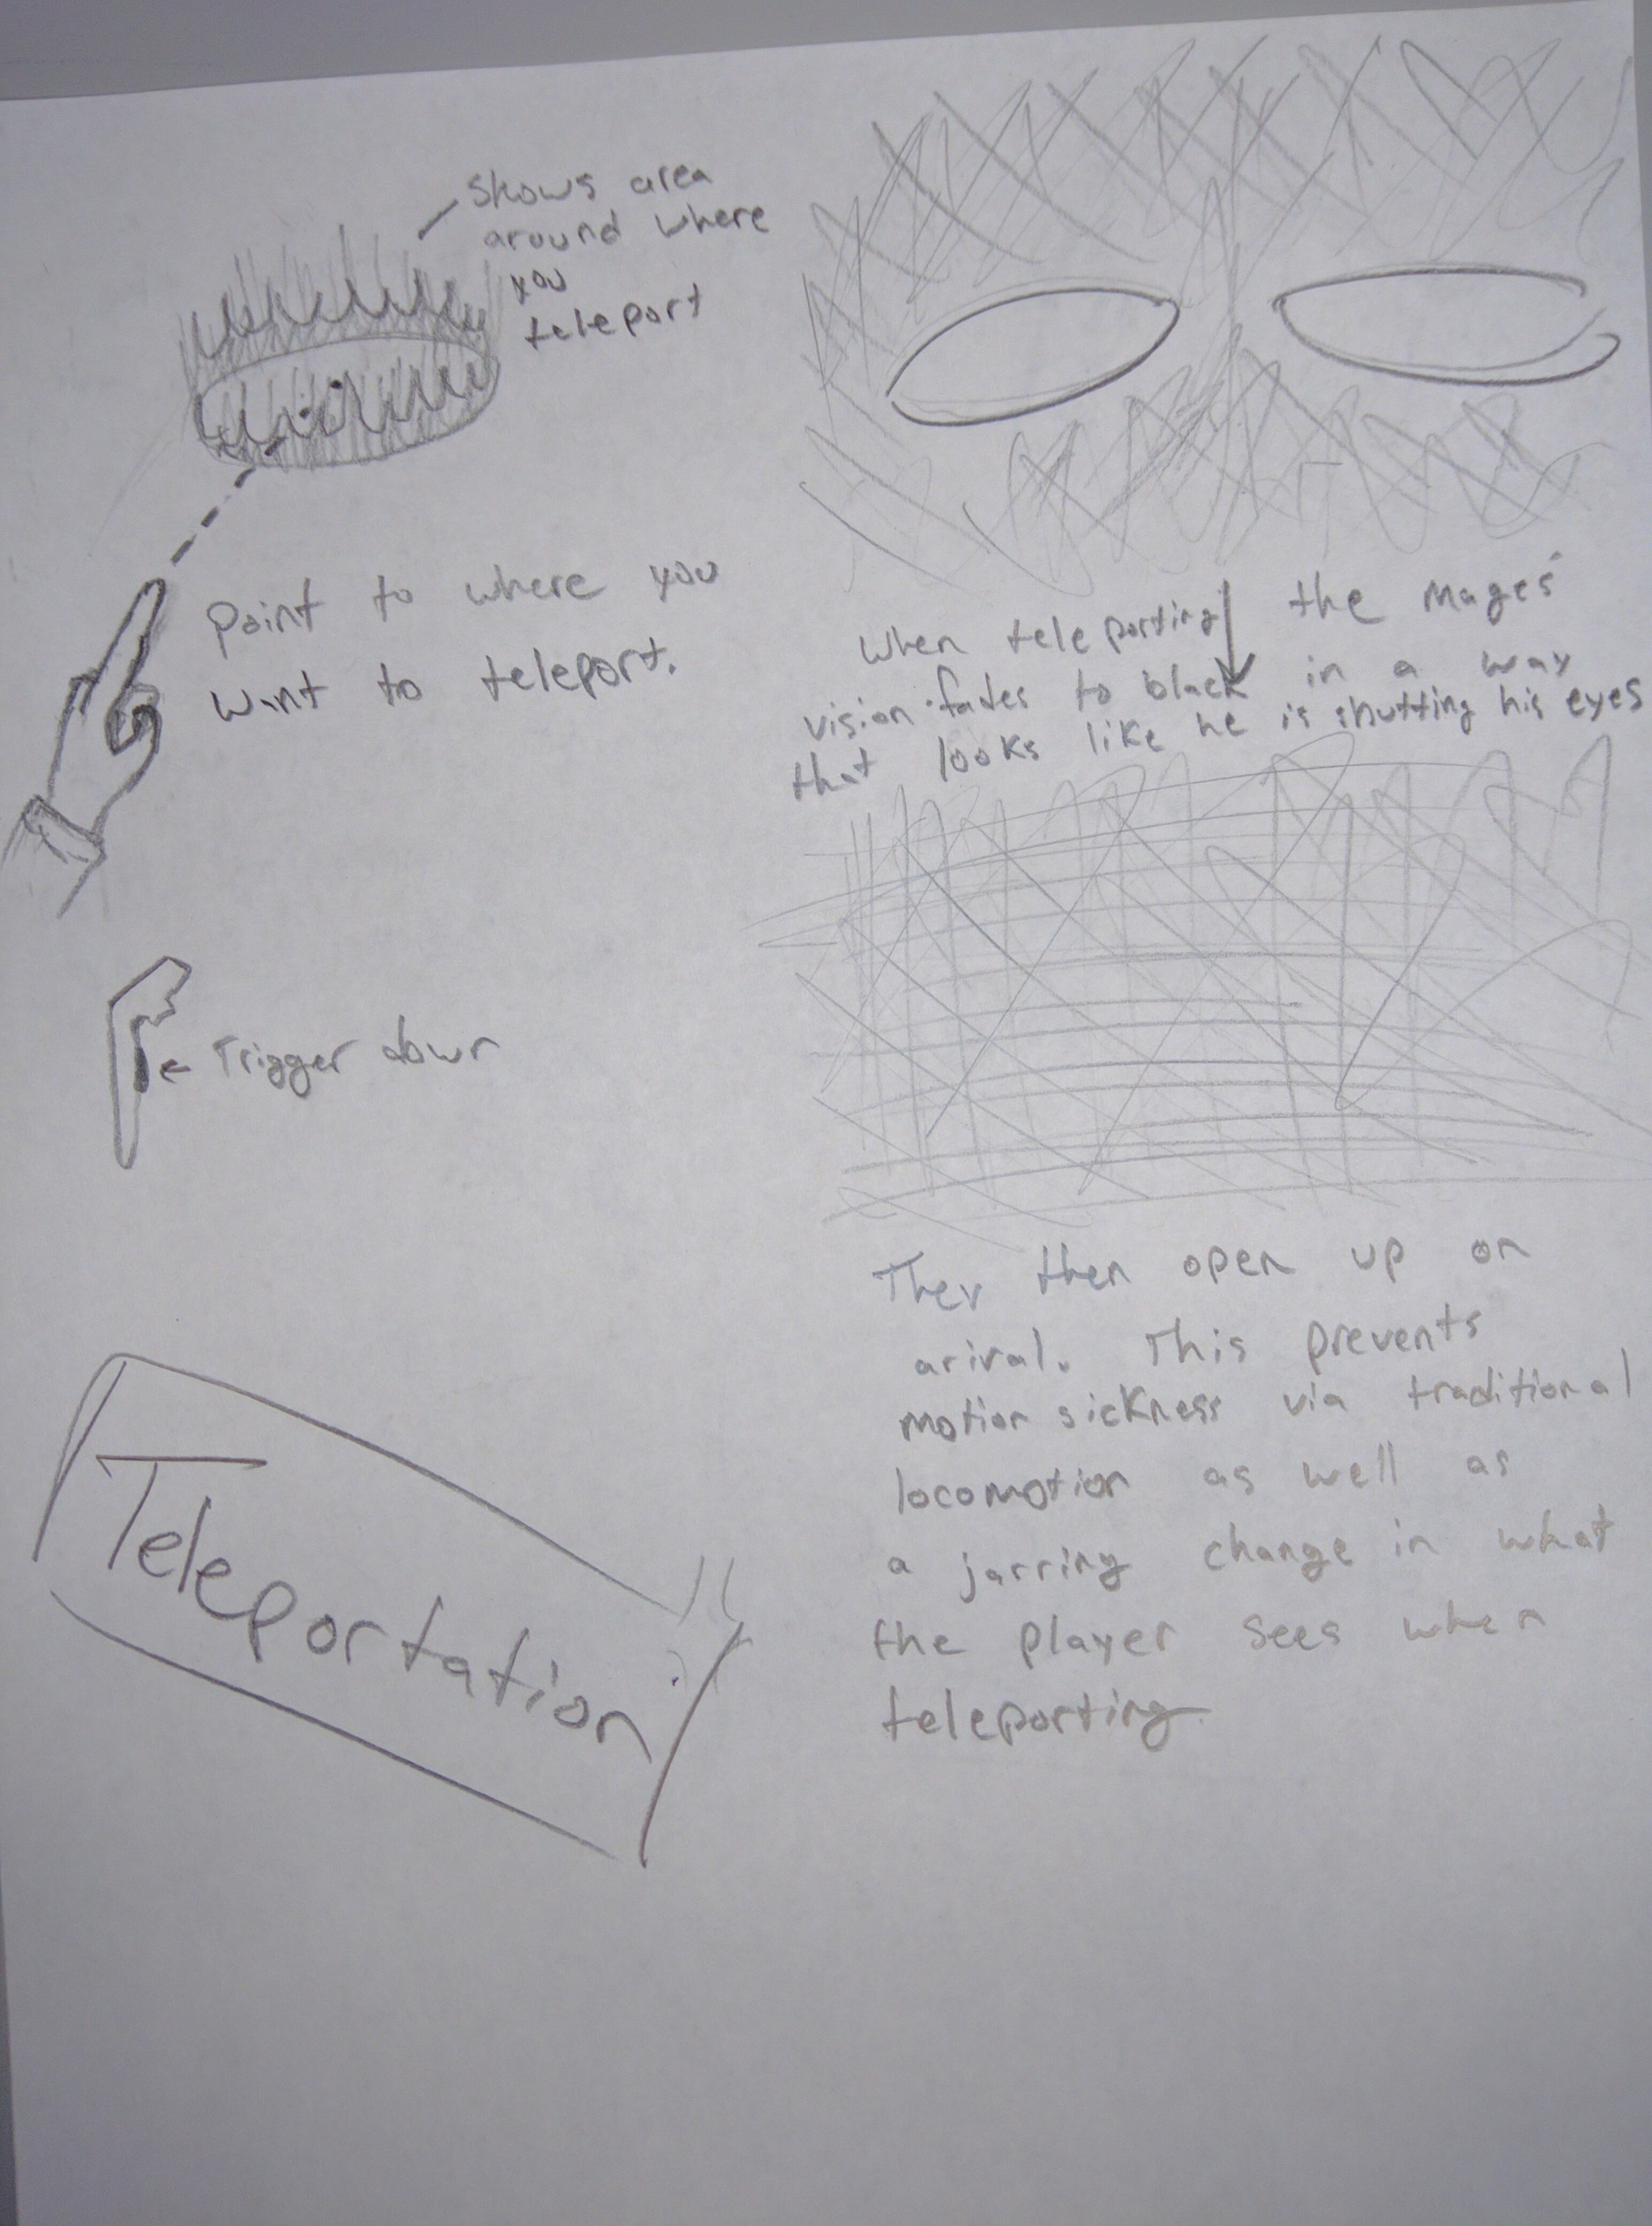 Shows area
around where
you
teleport
Point to where you
want to teleport.
Trigger down
Teleportation
When teleporting the Mages
vision fades to black in a way
that looks like he is shutting his eyes
They then open up on
arival. This prevents
motion sickness via traditional
locomotion as well as
a jarring change in what
the player sees when
teleporting